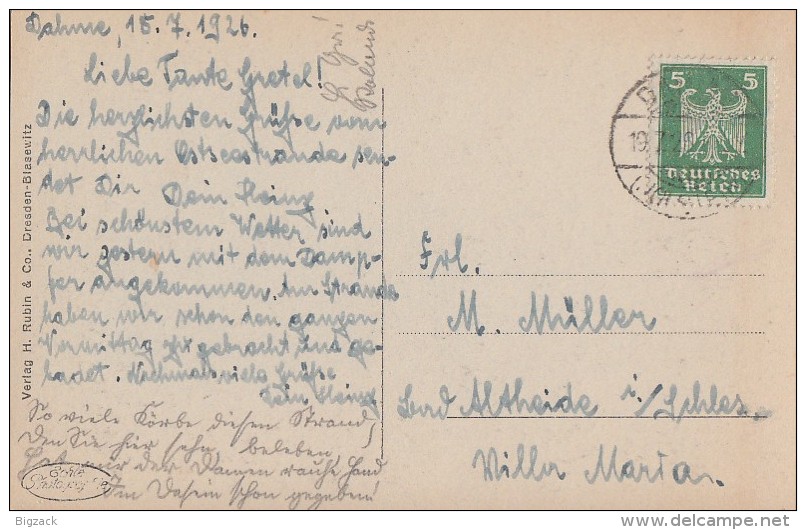 Dahme, 15.7.1926.
Liebe Tante Gretel!
Die herzlichsten Grüße vom
herrlichen Ostseestrande sen-
det Dir Dein Heinz
Bei schönstem Wetter sind
wir gestern mit dem Damp-
fer angekommen. Am Strande
haben wir schon den ganzen
Vormittag zugebracht und ge-
badet. Nochmals viele Grüße
Dein Heinz
So viele Körbe diesen Strand,
Den Sie hier sehn, beleben,
Hat nur der Damen rauhe Hand
Im Dasein schon gegeben!
Gr!
Roland
Verlag H. Rubin & Co., Dresden-Blasewitz
Echte
5 5
Deutsches
Reich
19.7.26
(HOLST)
Frl.
M. Müller
Bad Altheide i/Schles.
Villa Maria.
Bigzack
delcampe.net